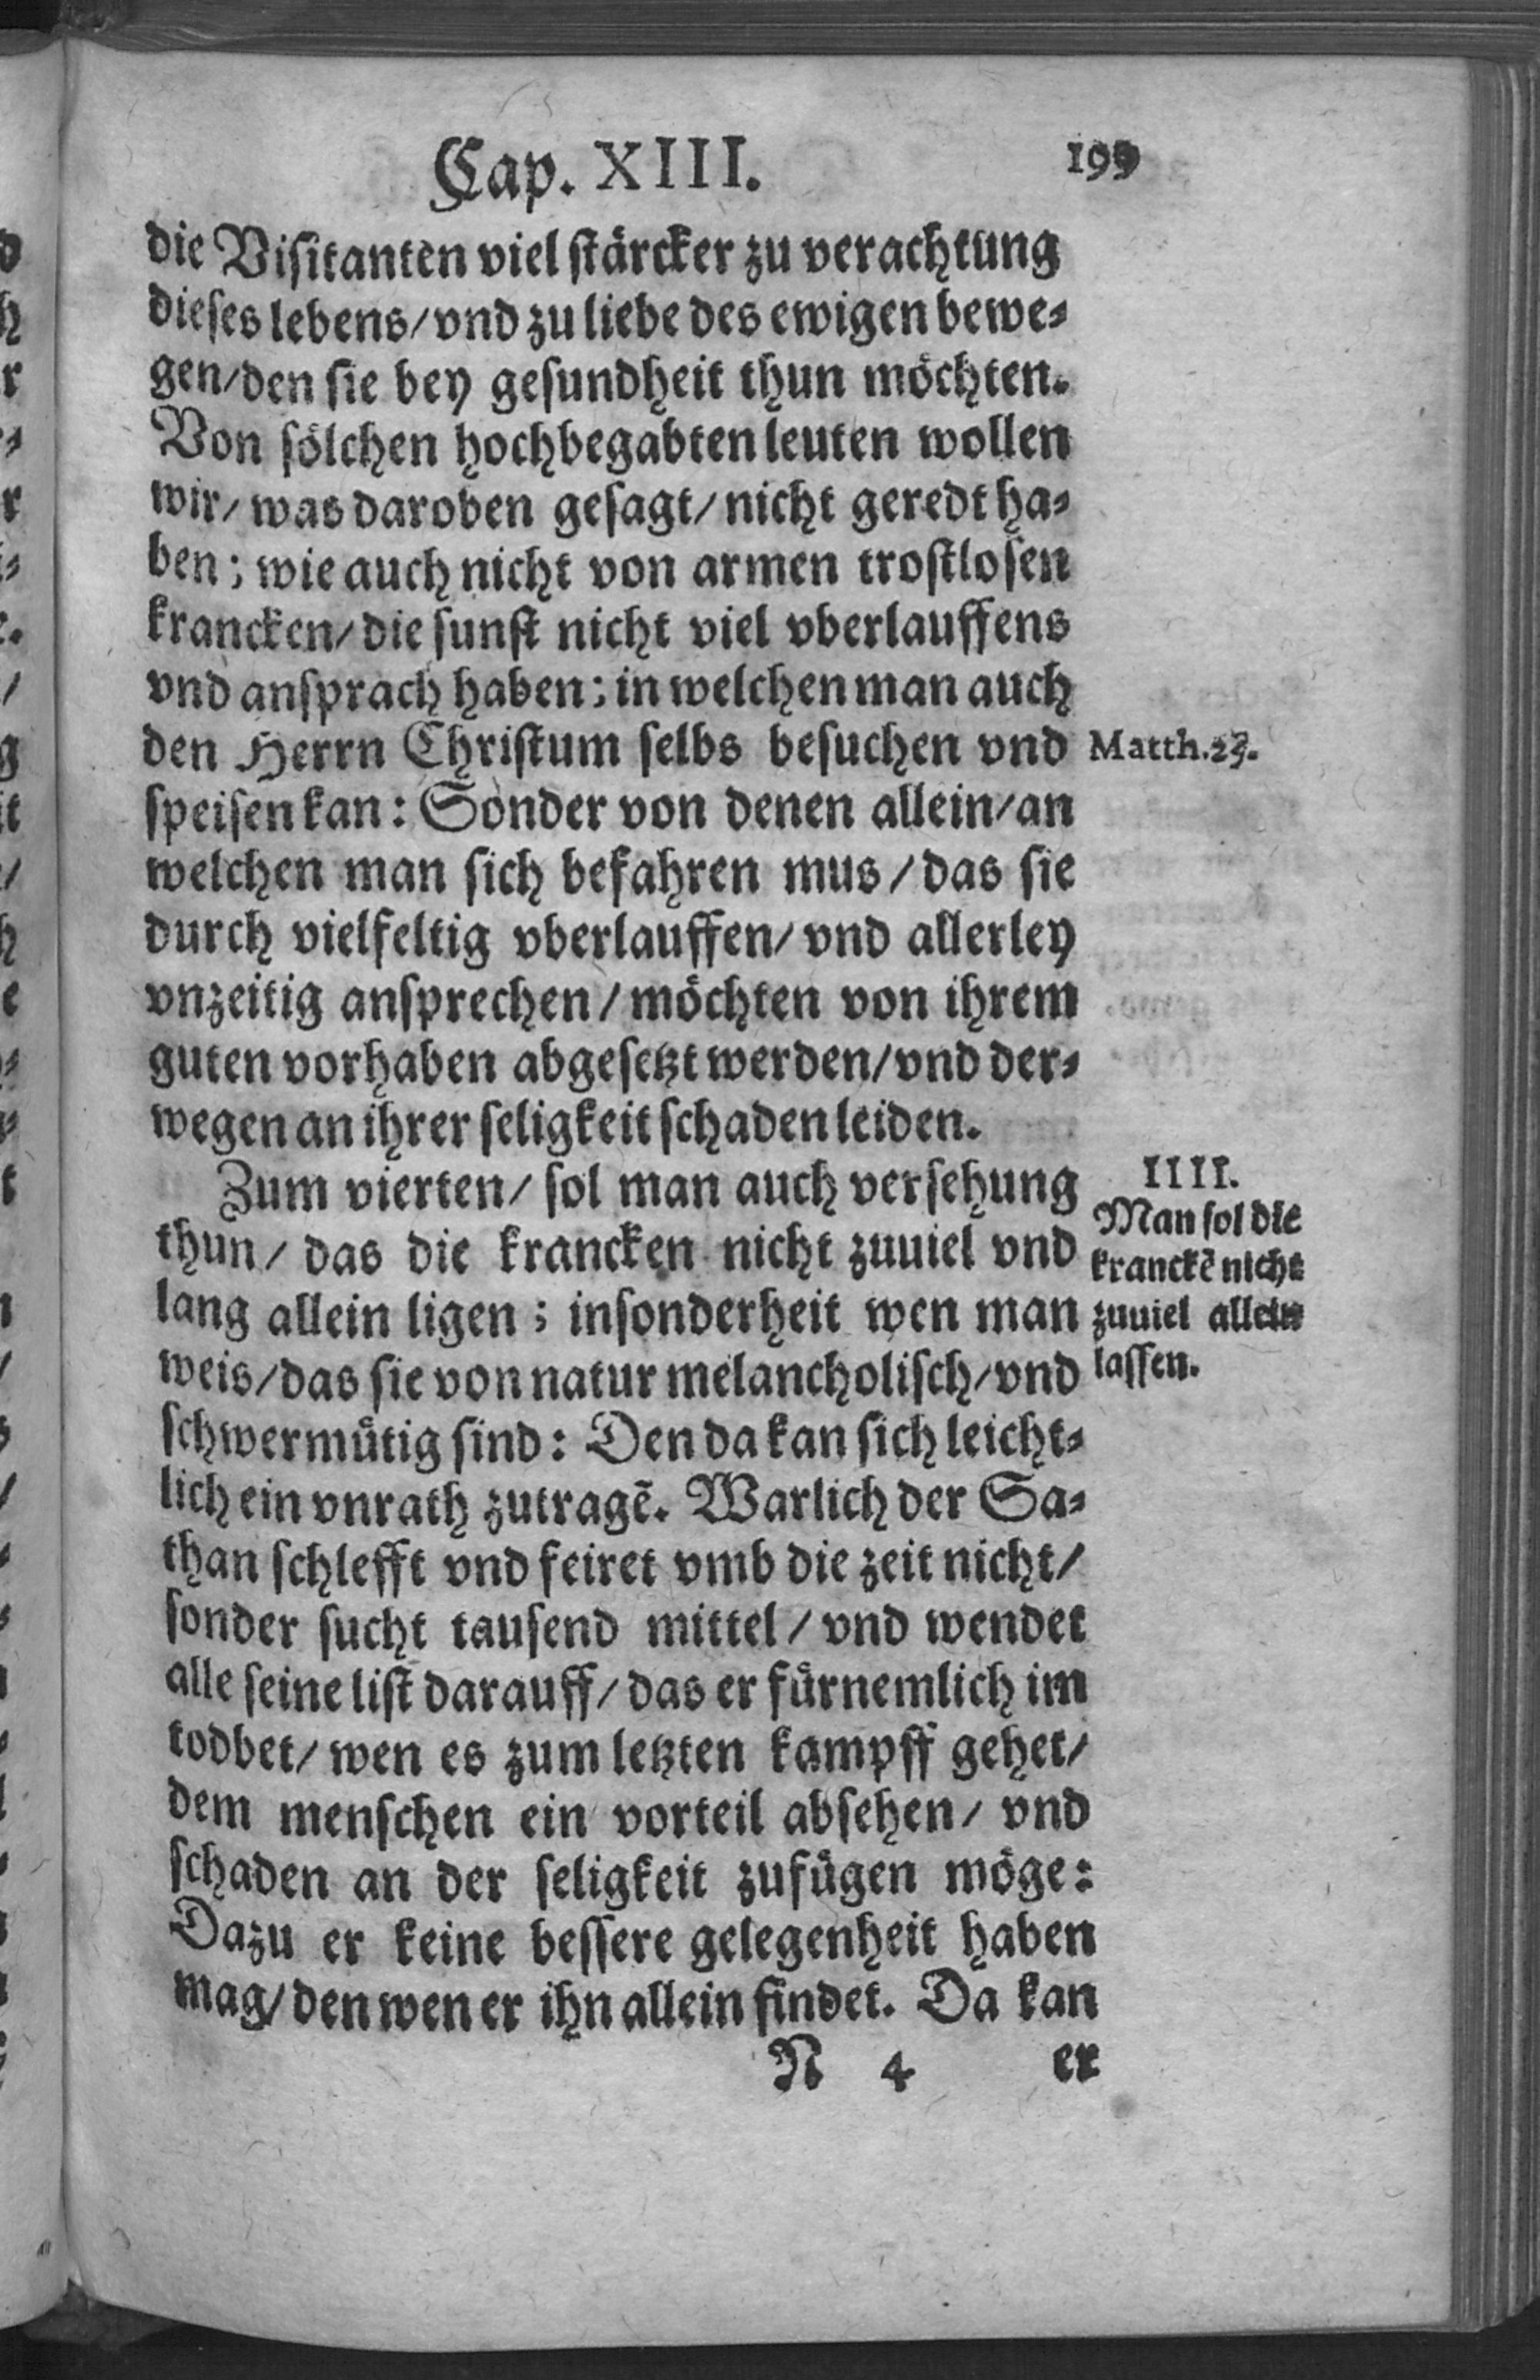 Cap. XIII. 199
die Visitanten viel stärcker zu verachtung
dieses lebens/ vnd zu liebe des ewigen bewe⸗
gen/ den sie bey gesundheit thun möchten.
Von sölchen hochbegabten leuten wollen
wir/ was daroben gesagt/ nicht geredt ha⸗
ben; wie auch nicht von armen trostlosen
krancken/ die sunst nicht viel vberlauffens
vnd ansprach haben; in welchen man auch
den Herrn Christum selbs besuchen vnd
Matth.25.
speisen kan: Sonder von denen allein/ an
welchen man sich befahren mus/ das sie
durch vielfeltig vberlauffen/ vnd allerley
vnzeitig ansprechen/ möchten von ihrem
guten vorhaben abgesetzt werden/ vnd der⸗
wegen an ihrer seligkeit schaden leiden.
Zum vierten/ sol man auch versehung
thun/ das die krancken nicht zuuiel vnd
lang allein ligen; insonderheit wen man
weis/ das sie von natur melancholisch/ vnd
IIII.
Man sol die
kranckẽ nicht
zuuiel allein
lassen.
schwermütig sind: Den da kan sich leicht⸗
lich ein vnrath zutragẽ. Warlich der Sa⸗
than schlefft vnd feiret vmb die zeit nicht/
sonder sucht tausend mittel/ vnd wendet
alle seine list darauff/ das er fürnemlich im
todbet/ wen es zum letzten kampff gehet/
dem menschen ein vorteil absehen/ vnd
schaden an der seligkeit zufügen möge:
Dazu er keine bessere gelegenheit haben
mag/ den wen er ihn allein findet. Da kan
N 4 er